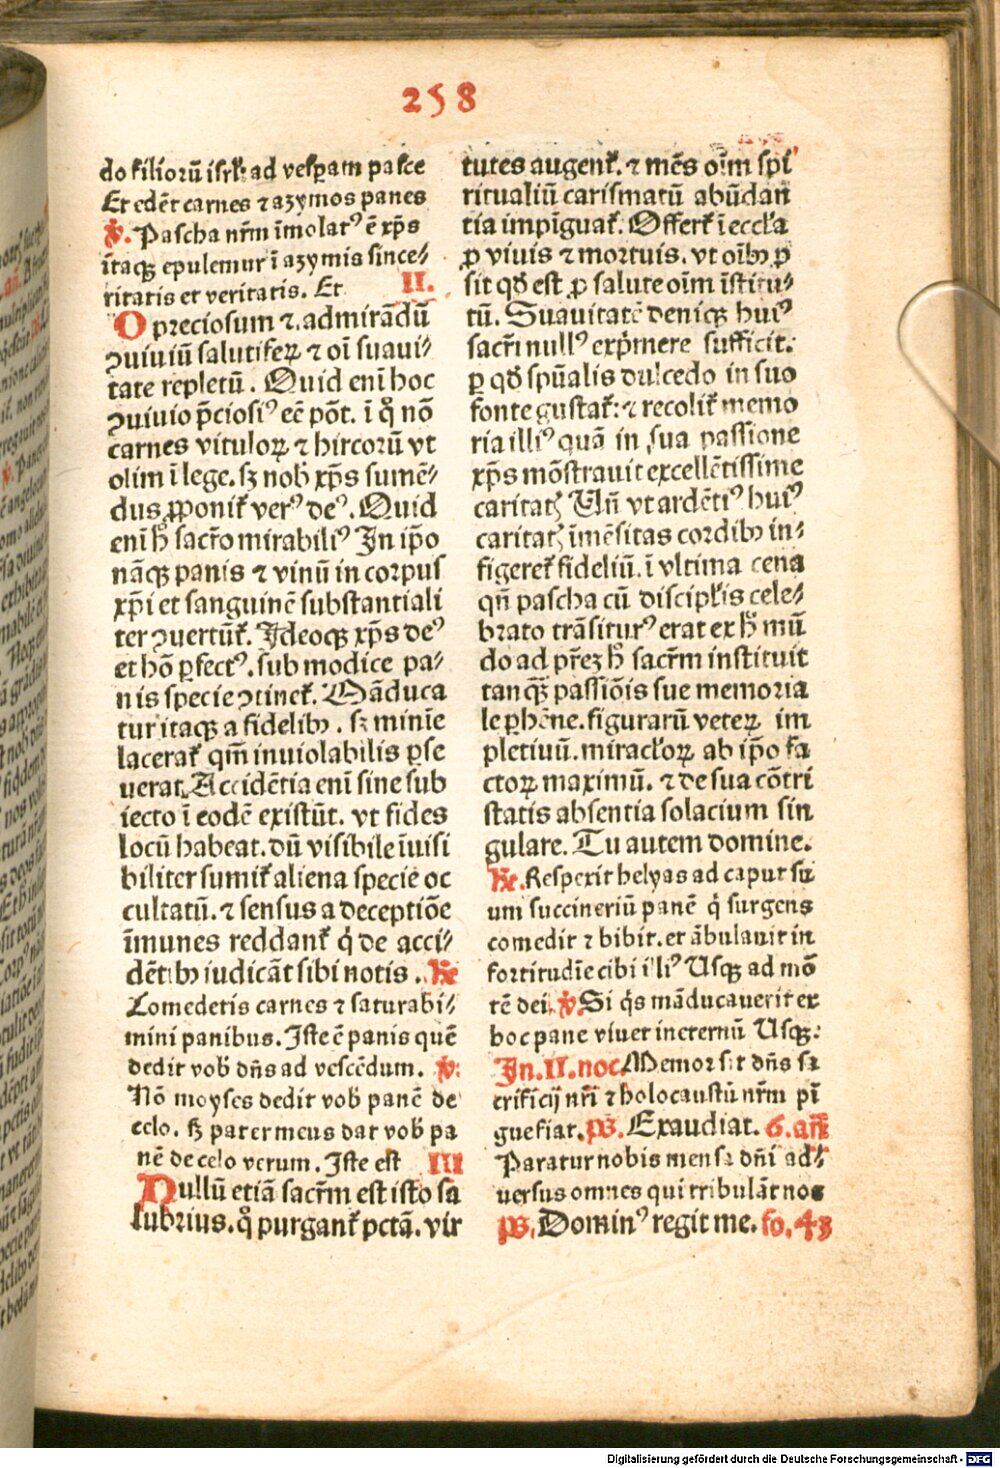 258
do filioꝝ iſrl̓ ad veſꝑam paſce
Et edēt carnes ⁊ azymos panes
℣. Paſcha nr̄m īmolatꝰ ē xp̄s
itaqꝫ epulemur ī azymis ſince⸗
ritatis et veritatis. Et II.
O preciosum ⁊ admirādū
ꝯuiuiū ſalutiferꝝ ⁊ oī ſuaui⸗
tate repletū. Quid enī hoc
ꝯuiuio p̄cioſiꝰ eē pōt. ī q̊ nō
carnes vituloꝝ ⁊ hircorū vt
olim ī lege. ſꝫ nob̓ xp̄s ſumē⸗
dus ꝓponit̓ verꝰ deꝰ. Quid
enī h̊ ſacr̄o mirabiliꝰ In ip̄o
nāqꝫ panis ⁊ vinū in corpus
xp̄i et ſanguinē ſubſtantiali
ter ꝯuertūt̓. Ideoqꝫ xp̄s deꝰ
et hō ꝑfectꝰ. ſub modice pa⸗
nis ſpecie ꝯtinet̓. Māduca
tur itaqꝫ a fidelibꝰ. ſꝫ minīe
lacerat̓ qm̄ inuiolabilis ꝑſe
uerat. Accidētia enī ſine ſub
iecto ī eodē exiſtūt. vt fides
locū habeat. dū viſibile īuiſi
biliter ſumit̓ aliena ſpecie oc
cultatū. ⁊ ſensus a deceptiōe
īmunes reddant̓ q̇ de acci⸗
dētibꝰ iudicāt ſibi notis. ℟
Comedetis carnes ⁊ ſaturabi⸗
mini panibus. Iſte ē panis quē
dedit vob̓ dn̄s ad veſcēdum. ℣.
Nō moyſes dedit vob̓ panē de
celo. ſꝫ pater meus dat vob̓ pa
nē de celo verum. Iſte eſt III
Nullū etiā ſacr̄m eſt iſto ſa
lubrius. q̊ purgant̓ pctā. vir
tutes augent̓. ⁊ mēs oīm ſpi
ritualiū cariſmatū abūdan
tia impīguat̓. Offert̓ ī eccl̓a
ꝓ viuis ⁊ mortuis. vt oībꝰ ꝓ
ſit qd̓ eſt ꝓ ſalute oīm īſtitu⸗
tū. Suauitatē deniqꝫ huiꝰ
ſacr̄i nullꝰ exp̄mere ſufficit.
ꝑ qd̓ ſpūalis dulcedo in ſuo
fonte guſtat̓: ⁊ recolit̓ memo
ria illiꝰ quā in ſua paſſione
xp̄s mōſtrauit excellētiſſime
caritatꝭ Un̄ vt ardētiꝰ huiꝰ
caritatꝭ īmēſitas cordibꝰ in⸗
figeret̓ fideliū. ī vltima cena
qn̄ paſcha cū diſcipl̓is cele⸗
brato trāſiturꝰ erat ex h̊ mū
do ad pr̄eꝫ h̊ ſacr̄m inſtituit
tanqꝫ paſſiōis ſue memoria
le ꝑhēne. figurarū veteꝝ im
pletiuū. miracl̓oꝝ ab ip̄o fa
ctoꝝ maximū. ⁊ de ſua cōtri
ſtatis abſentia ſolacium ſin
gulare. Tu autem domine.
℟. Reſpexit helyas ad caput ſu
um ſuccineriū panē q̇ ſurgens
comedit ⁊ bibit. et ābulauit in
fortitudīe cibi illiꝰ Uſqꝫ ad mō
tē dei. ℣. Si q̇s māducauerit ex
hoc pane viuet in eternū Uſqꝫ.
In. II. noc. Memor ſit dn̄s ſa
crificij nr̄i ⁊ holocauſtū nr̄m pī
gue fiat. ps. Exaudiat. 6. an̄
Paratur nobis menſa dn̄i ad⸗
uerſus omnes qui tribulāt nos
ps. Dominꝰ regit me. fo. 43
Digitalisierung gefördert durch die Deutsche Forschungsgemeinschaft - DFG